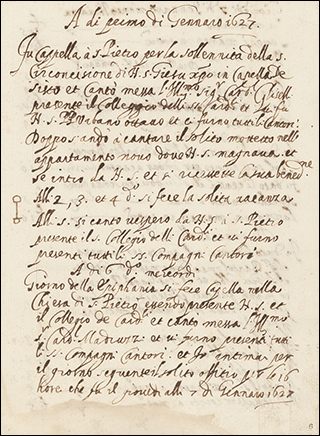 A di primo di Gennaro 1627.
In Cappella à S. Pietro per la sollennità della s.
Circoncisione di N. S. Giesù xpo in Cappella de
Sisto et Cantò messa l'Ill.mo Sig. Card.
presente il Colleggio delli ss. Card. et
N. S. PP. Urbano ottavo et ci furno tutti li Cantori
Doppo si andò à cantare il solito mottetto nell'
appartamento novo dove N. S. magnava, et
se intrò da N. S. et si ricevette la sua bened.ne
Alli 2, 3, et 4 d.o si fece la solita vacanza
Alli 5 si cantò vespero da N. S. in S. Pietro
presente il s. Collegio delli Card. et vi furno
presenti tutti li ss. Compagni Cantori
A di 6 d.o mercordì
Giorno della Epiphania si fece Cappella nella
Chiesa di S. Pietro essendo presente N. S. et
il Collegio de Card. et cantò messa l'Ill.mo
s. Card. Madruzz. et vi furno presenti tutti
li ss. Compagni Cantori, et per
il giorno sequente il solito offitio 16
hore che fu il giovedì alli 7 di Gennaro 1627